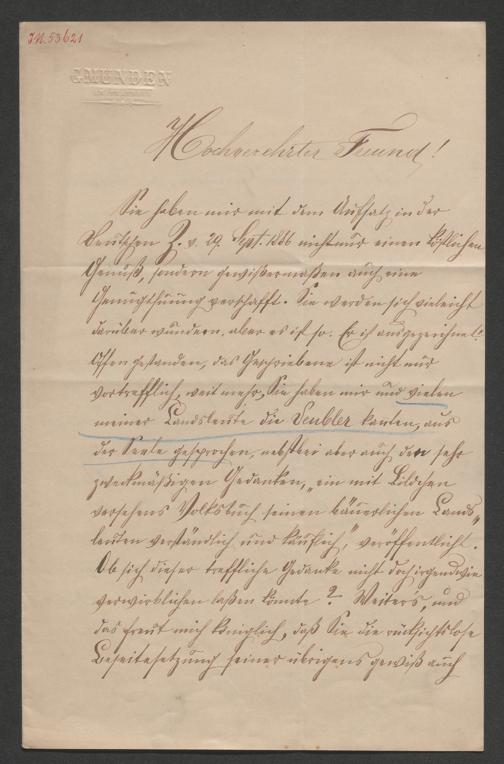 IN.53621
GMUNDEN
Hochverehrter Freund!
Sie haben mir mit dem Aufsatz in der
Deutschen Z. v. 29. Sept. 1886 nicht nur einen köstlichen
Genuß, sondern gewißermaßen auch eine
Genugthuung verschafft. Sie werden sich vieleicht
darüber wundern, aber es ist so. Er ist ausgezeichnet!
Offen gestanden, das Geschriebene ist nicht nur
vortrefflich, weit mehr, Sie haben mir und vielen
meiner Landsleute die Deubler kanten, aus
der Seele gesprochen, nebstbei aber auch den sehr
zweckmäßigen Gedanken, "ein mit Bildchen
versehens Volksbuch seinen bäuerlichen Lands-
leuten verständlich und käuflich," veröffentlicht.
Ob sich dieser treffliche Gedanke nicht doch irgendwie
verwirklichen laßen könnte? Weiter's, und
das freut mich königlich, daß Sie die rücksichtslose
Beseitesetzung seiner übrigens gewiß auch